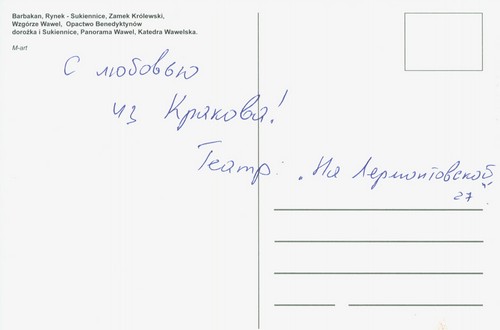 Barbakan, Rynek - Sukiennice, Zamek Królewski,
Wzgórze Wawel, Opactwo Benedyktynów
dorożka i Sukiennice, Panorama Wawel, Katedra Wawelska.
M-art
С любовью
из Кракова!
Театр: „На Лермонтовской
27"